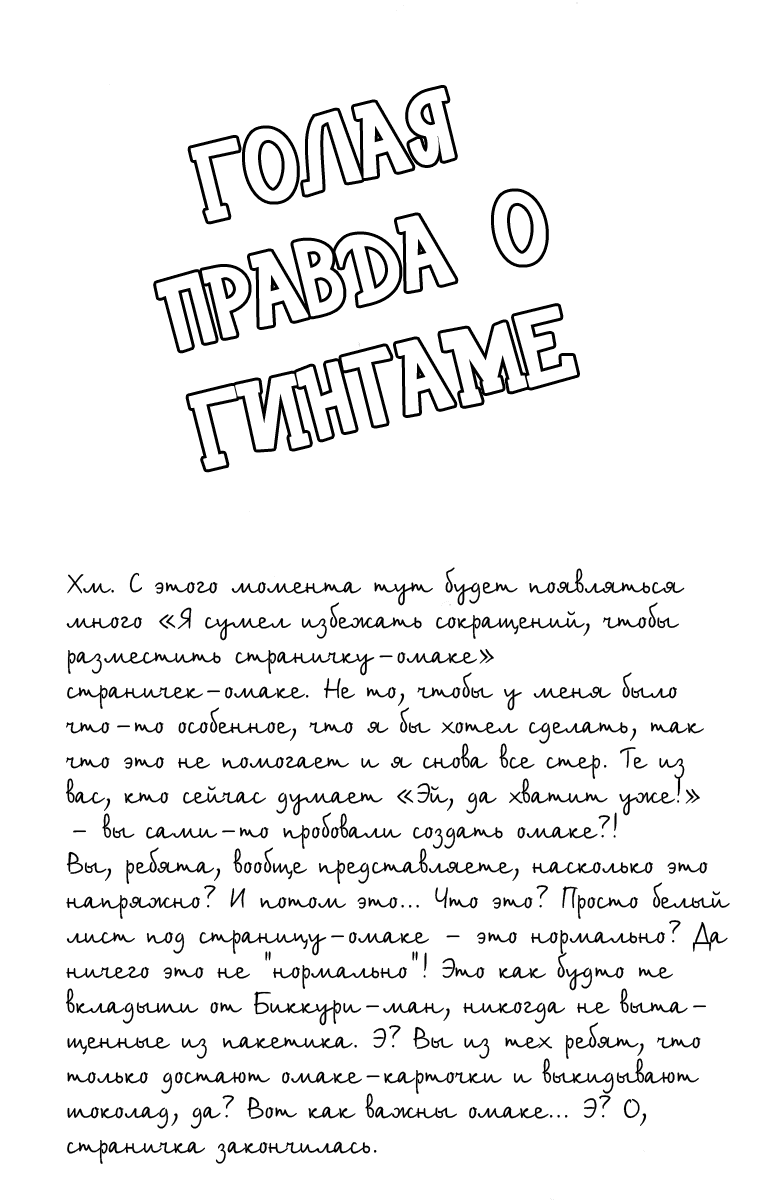 ГОЛАЯ
ПРАВДА О
ГИНТАМЕ
Хм. С этого момента тут будет появляться
много «Я сумел избежать сокращений, чтобы
разместить страничку-омаке»
страничек-омаке. Не то, чтобы у меня было
что-то особенное, что я бы хотел сделать, так
что это не помогает и я снова все стер. Те из
вас, кто сейчас думает «Эй, да хватит уже!»
- вы сами-то пробовали создать омаке?!
Вы, ребята, вообще представляете, насколько это
напряжно? И потом это... Что это? Просто белый
лист под страницу-омаке - это нормально? Да
ничего это не "нормально"! Это как будто те
вкладыши от Биккури-ман, никогда не выта-
щенные из пакетика. Э? Вы из тех ребят, что
только достают омаке-карточки и выкидывают
шоколад, да? Вот как важны омаке... Э? О,
страничка закончилась.